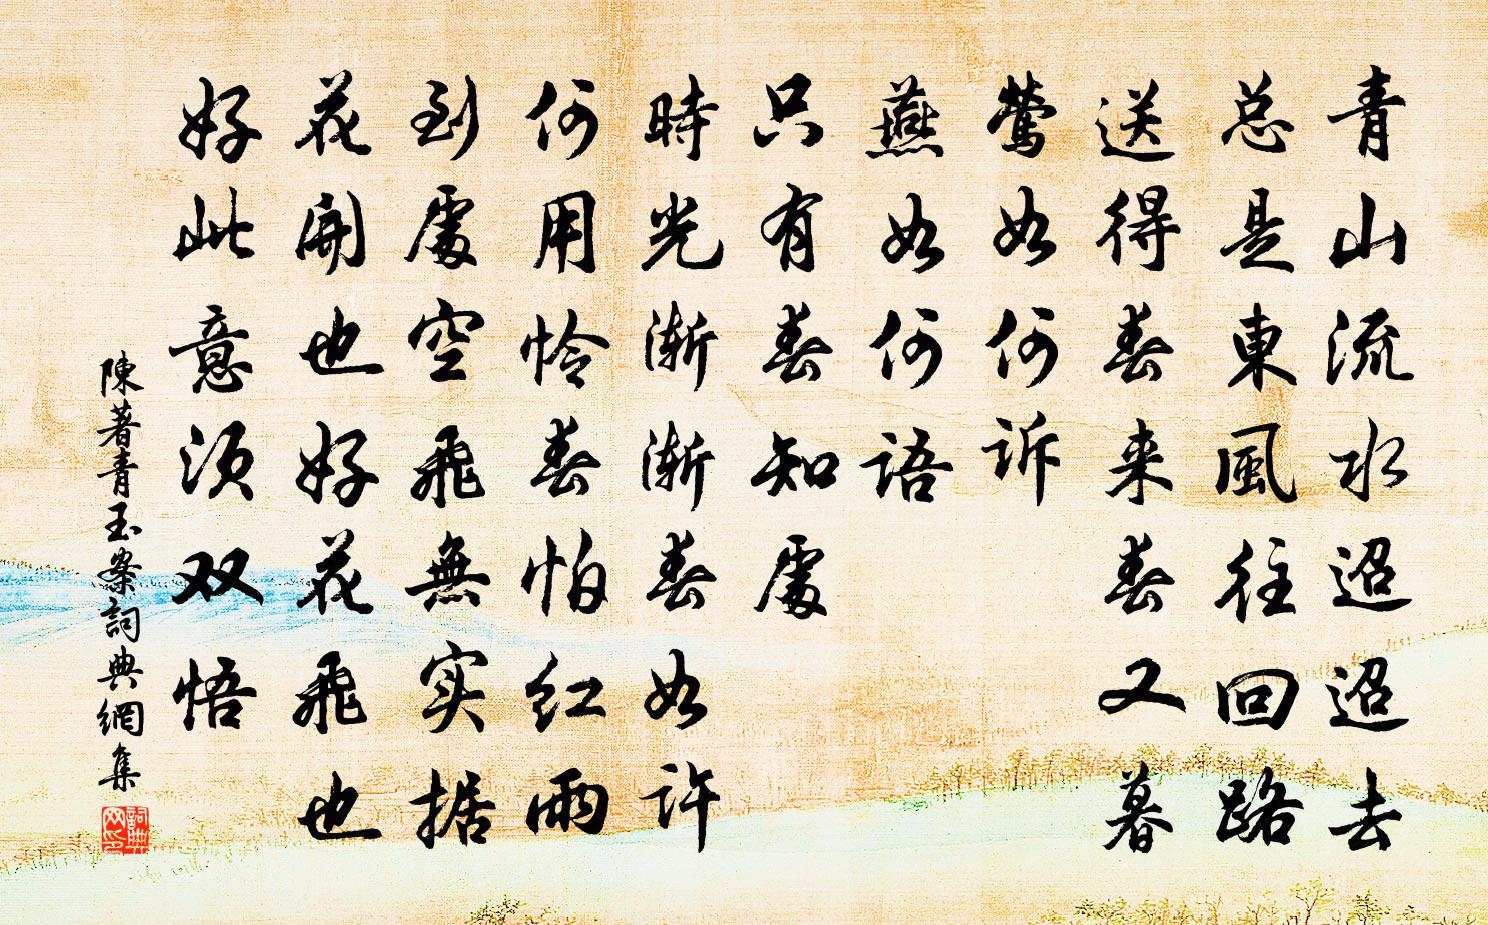 青山流水迢迢去
总是東風往回路
送得春来春又暮
鶯如何诉
燕如何语
只有春知處
時光渐渐春如许
何用怜春怕红雨
到處空飛無实据
花開也好花飛也
好此意须双悟
陳著青玉案詞典網集
詞典网印